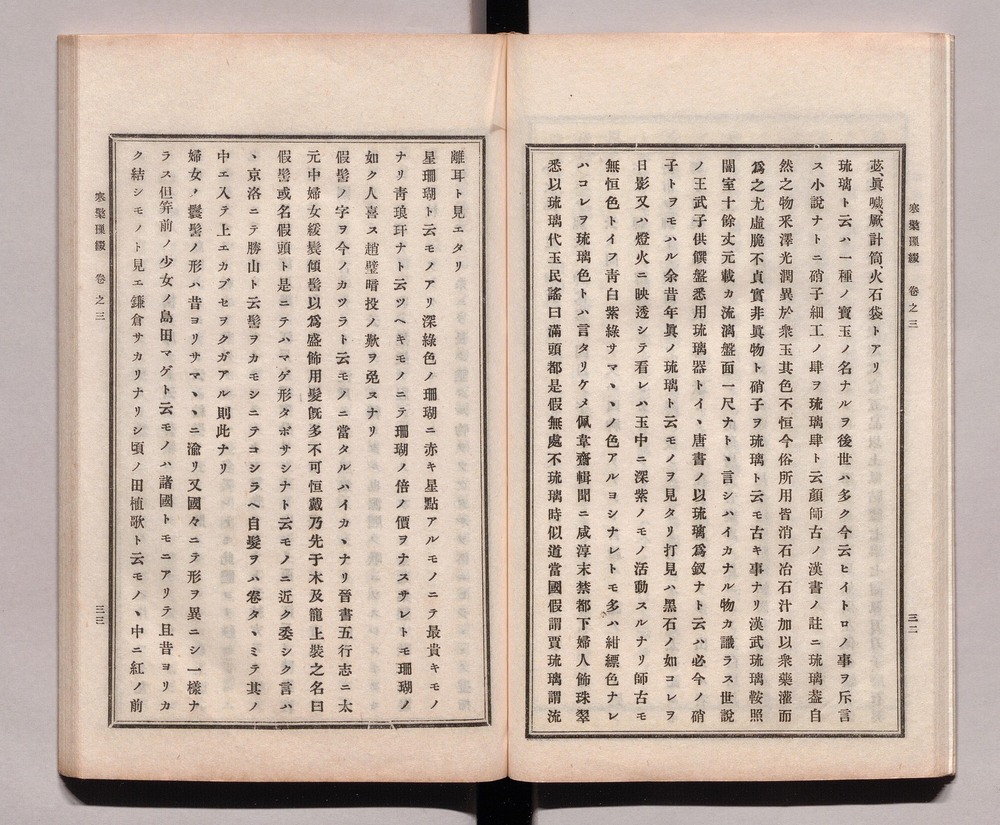 寒檠璅綴 卷之三
三二
苾眞嚱厥計筒火石袋トアリ
琉璃ト云ハ一種ノ寶玉ノ名ナルヲ後世ハ多ク今云ヒイトロノ事ヲ斥言
ス小說ナトニ硝子細工ノ肆ヲ琉璃肆ト云顏師古ノ漢書ノ註ニ琉璃葢自
然之物釆澤光潤異於衆玉其色不恒今俗所用皆消石冶石汁加以衆藥灌而
爲之尤虛脆不貞實非眞物ト硝子ヲ琉璃ト云モ古キ事ナリ漢武琉璃鞍照
闇室十餘丈元載カ流漓盤面一尺ナト丶言シハイカナル物カ識ラス世說
ノ王武子供饌盤悉用琉璃器トイ丶唐書ノ以琉璃爲釵ナト云ハ必今ノ硝
子トヲモハル余昔年眞ノ琉璃ト云モノヲ見タリ打見ハ黑石ノ如コレヲ
日影又ハ燈火ニ映透シテ看レハ玉中ニ深紫ノモノ活動スルナリ師古モ
無恒色トイフ靑白紫綠サマ丶丶ノ色アルヨシナレトモ多ハ紺縹色ナレ
ハコレヲ琉璃色トハ言タリケメ佩韋齋輯聞ニ咸淳末禁都下婦人飾珠翠
悉以琉璃代玉民謠曰滿頭都是假無處不琉璃時似道當國假謂賈琉璃謂流
離耳ト見エタリ
星珊瑚ト云モノアリ深綠色ノ珊瑚ニ赤キ星點アルモノニテ最貴キモノ
ナリ靑琅玕ナト云ツヘキモノニテ珊瑚ノ倍ノ價ヲナスサレトモ珊瑚ノ
如ク人喜ス趙璧暗投ノ歎ヲ免スナリ
假髻ノ字ヲ今ノカツラト云モノニ當タルハイカ丶ナリ晉書五行志ニ太
元中婦女緩鬂傾髻以爲盛飾用髮旣多不可恒戴乃先于木及籠上裝之名曰
假髻或名假頭ト是ニテハマゲ形タボサシナト云モノニ近ク委シク言ハ
丶京洛ニテ勝山ト云髻ヲカモシニテコシラヘ自髮ヲハ卷タ丶ミテ其ノ
中エ入テ上エカブセヲクガアル則此ナリ
婦女ノ鬟髻ノ形ハ昔ヨリサマ丶丶ニ渝リ又國々ニテ形ヲ異ニシ一樣ナ
ラス但笄前ノ少女ノ島田マゲト云モノハ諸國トモニアリテ且昔ヨリカ
ク結シモノト見エ鎌倉サカリナリシ頃ノ田植歌ト云モノ丶中ニ紅ノ前
寒檠璅綴 卷之三
三三